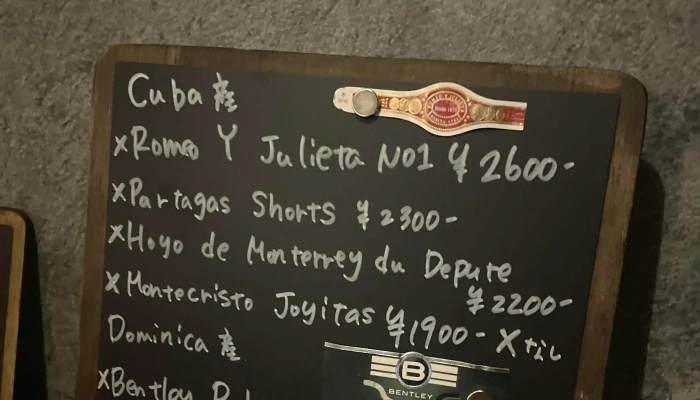 Cuba産
×Romeo Y Julieta No1 ¥2600-
×Partagas Shorts ¥2300-
×Hoyo de Monterrey du Depute
¥2200-
×Montecristo Joyitas ¥1900-
Dominica産
BENTLEY
×Bentley